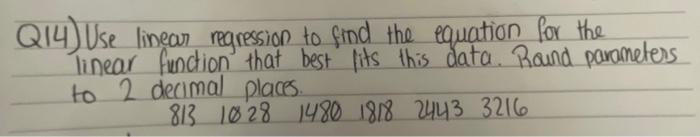 Q14) Use linear regression to find the equation for the
linear function that best fits this data. Round parameters
to 2 decimal places.
813 1028 1480 1818 2443 3216